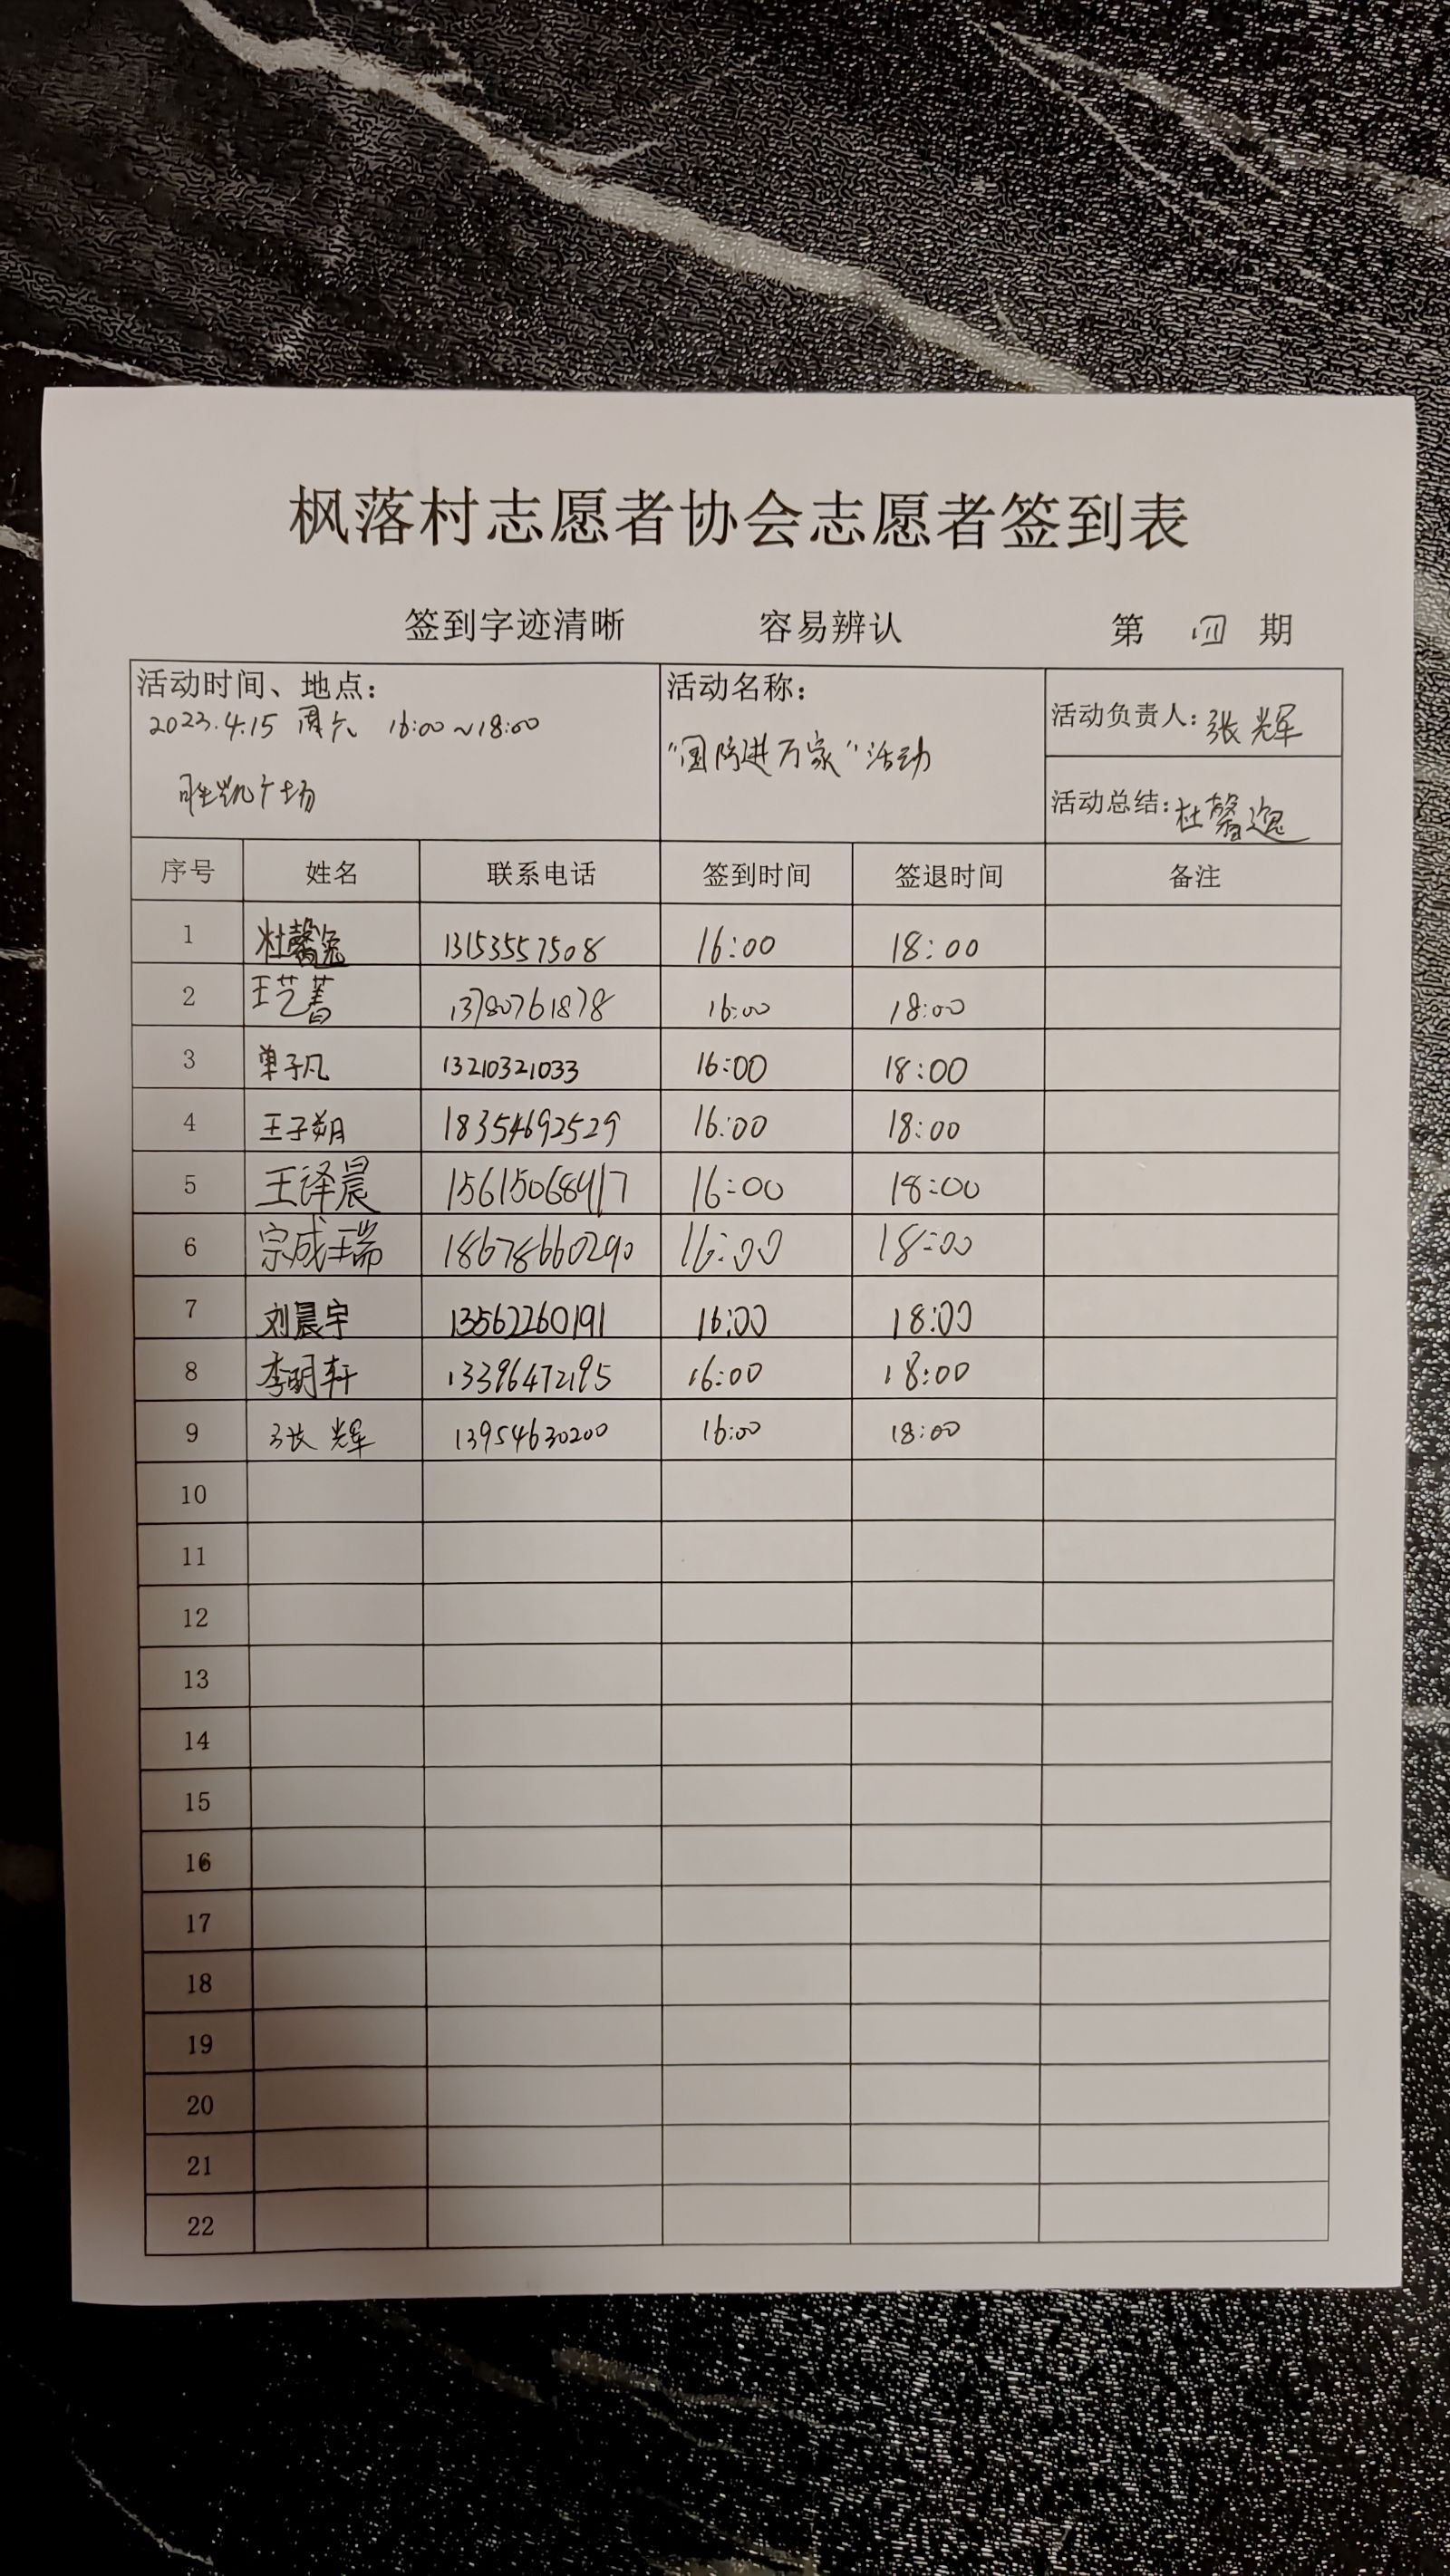 枫落村志愿者协会志愿者签到表
签到字迹清晰 容易辨认 第 四 期
活动时间、地点： 活动名称： 活动负责人：张辉
2023.4.15 周六 16:00~18:00 "国防进万家"活动
胜凯广场 活动总结：杜馨逸
序号 姓名 联系电话 签到时间 签退时间 备注
1 杜馨逸 13153557508 16:00 18:00
2 王艺菁 13780761878 16:00 18:00
3 单子凡 13210321033 16:00 18:00
4 王子朔 18354692529 16:00 18:00
5 王译晨 15615068917 16:00 18:00
6 宗成瑞 18678660290 16:00 18:00
7 刘晨宇 13562260191 16:00 18:00
8 李明轩 13396472195 16:00 18:00
9 张辉 13954630200 16:00 18:00
10
11
12
13
14
15
16
17
18
19
20
21
22